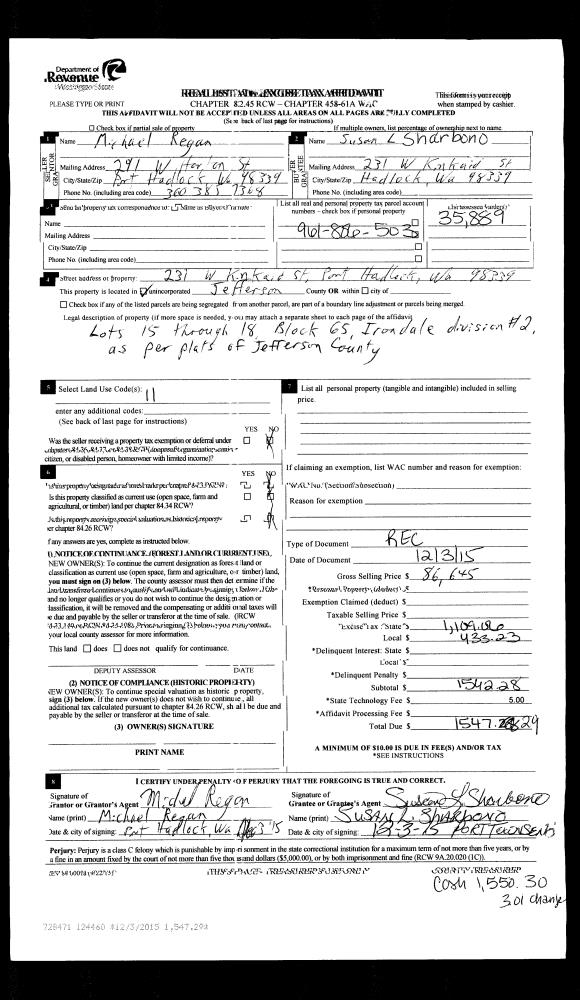 Department of
Revenue
Washington State
REAL ESTATE EXCISE TAX AFFIDAVIT
This form is your receipt
PLEASE TYPE OR PRINT
CHAPTER 82.45 RCW – CHAPTER 458-61A WAC
when stamped by cashier.
THIS AFFIDAVIT WILL NOT BE ACCEPTED UNLESS ALL AREAS ON ALL PAGES ARE FULLY COMPLETED
(See back of last page for instructions)
☐ Check box if partial sale of property
If multiple owners, list percentage of ownership next to name.
1 Name Michael Regan
2 Name Susan L Sharbono
SELLER GRANTOR
BUYER GRANTEE
Mailing Address 291 W Horton St
Mailing Address 231 W Kinkaid St
City/State/Zip Port Hadlock, Wa 98339
City/State/Zip Hadlock, Wa 98339
Phone No. (including area code) 360 385 7308
Phone No. (including area code)
3 Send all property tax correspondence to: ☐ Same as Buyer/Grantee
List all real and personal property tax parcel account
numbers – check box if personal property
Name
961-806-503 ☐
35,889
Mailing Address
City/State/Zip
Phone No. (including area code)
4 Street address of property: 231 W Kinkaid St, Port Hadlock, Wa 98339
This property is located in ☑ unincorporated Jefferson County OR within ☐ city of
☐ Check box if any of the listed parcels are being segregated from another parcel, are part of a boundary line adjustment or parcels being merged.
Legal description of property (if more space is needed, you may attach a separate sheet to each page of the affidavit)
Lots 15 through 18, Block 65, Irondale division #2,
as per plats of Jefferson County
5 Select Land Use Code(s): 11
enter any additional codes:
(See back of last page for instructions)
YES NO
Was the seller receiving a property tax exemption or deferral under
citizen, or disabled person, homeowner with limited income)?
6 YES NO
Is this property classified as current use (open space, farm and
agricultural, or timber) land per chapter 84.34 RCW?
Is this property receiving special valuation as historical property
per chapter 84.26 RCW?
If any answers are yes, complete as instructed below.
(1) NOTICE OF CONTINUANCE (FOREST LAND OR CURRENT USE)
NEW OWNER(S): To continue the current designation as forest land or
classification as current use (open space, farm and agriculture, or timber) land,
you must sign on (3) below. The county assessor must then determine if the
land transferred continues to qualify and will indicate by signing below. If the
land no longer qualifies or you do not wish to continue the designation or
classification, it will be removed and the compensating or additional taxes will
be due and payable by the seller or transferor at the time of sale. (RCW
your local county assessor for more information.
This land ☐ does ☐ does not qualify for continuance.
DEPUTY ASSESSOR DATE
(2) NOTICE OF COMPLIANCE (HISTORIC PROPERTY)
NEW OWNER(S): To continue special valuation as historic property,
sign (3) below. If the new owner(s) does not wish to continue, all
additional tax calculated pursuant to chapter 84.26 RCW, shall be due and
payable by the seller or transferor at the time of sale.
(3) OWNER(S) SIGNATURE
PRINT NAME
7 List all personal property (tangible and intangible) included in selling
price.
If claiming an exemption, list WAC number and reason for exemption:
WAC No. (Section/Subsection)
Reason for exemption
Type of Document REC
Date of Document 12/3/15
Gross Selling Price $ 86,645
*Personal Property (deduct) $
Exemption Claimed (deduct) $
Taxable Selling Price $
Excise Tax : State $ 1,109.06
Local $ 433.23
*Delinquent Interest: State $
Local $
*Delinquent Penalty $
Subtotal $ 1542.28
*State Technology Fee $ 5.00
*Affidavit Processing Fee $
Total Due $ 1547.29
A MINIMUM OF $10.00 IS DUE IN FEE(S) AND/OR TAX
*SEE INSTRUCTIONS
8 I CERTIFY UNDER PENALTY OF PERJURY THAT THE FOREGOING IS TRUE AND CORRECT.
Signature of
Grantor or Grantor's Agent Michael Regan
Signature of
Grantee or Grantee's Agent Susan L. Sharbono
Name (print) Michael Regan
Name (print) SUSAN L. SHARBONO
Date & city of signing: Port Hadlock, Wa 3 '15
Date & city of signing: 12-3-15 PORT TOWNSEND
Perjury: Perjury is a class C felony which is punishable by imprisonment in the state correctional institution for a maximum term of not more than five years, or by
a fine in an amount fixed by the court of not more than five thousand dollars ($5,000.00), or by both imprisonment and fine (RCW 9A.20.020 (1C)).
THIS SPACE - TREASURER'S USE ONLY
COUNTY TREASURER
Cash 1,550.30
3.01 change
728471 124460 #12/3/2015 1,547.29#